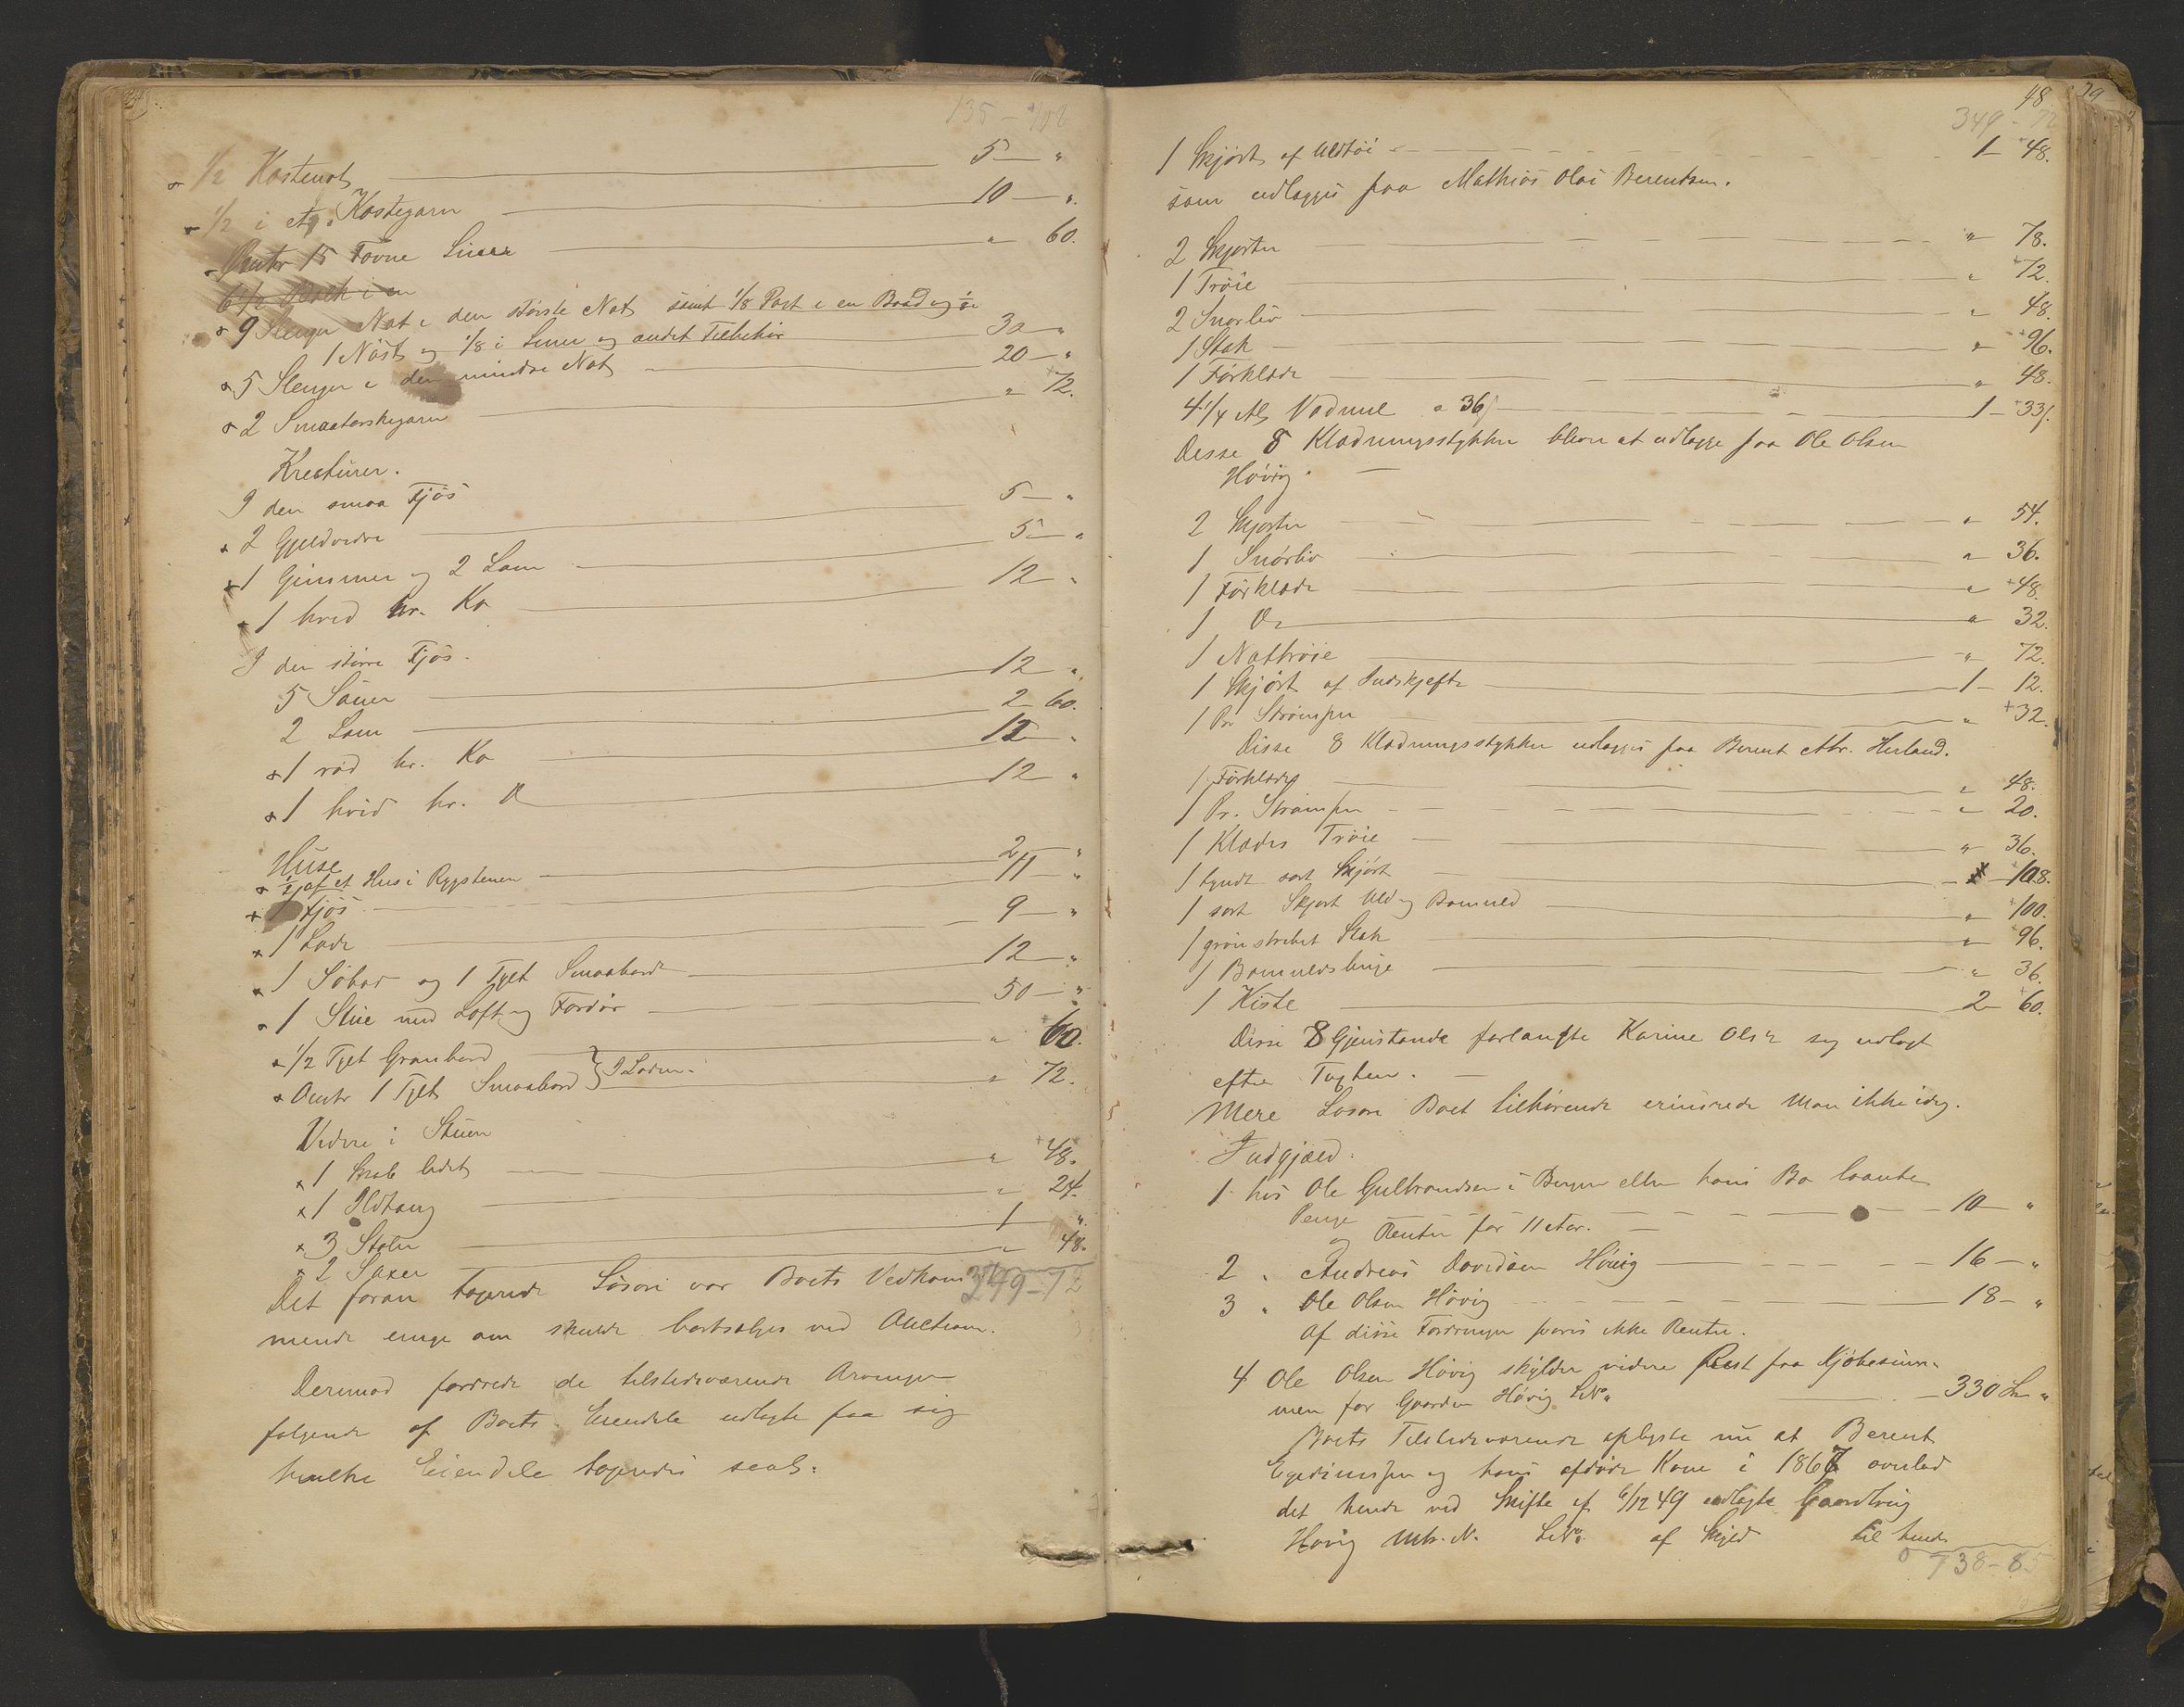 135 - 108
1/2 Kastenot 5 — "
1/2 i et Kastegarn 10 — "
Omtr 15 Favne Liner " 60.
6 1/2 i en
9 Slenger Not i den største Not samt 1/8 Part i en Baad og
1 Nøst og 1/8 i Liner og andet Tilbehør 30 — "
5 Slenger i den mindre Not 20 — "
2 Smaatorskegarn " 72.
Kreaturer.
I den smaa Fjøs
2 Gjeldvedre 5 — "
1 Gimmer og 2 Lam 5 — "
1 hvid kr. Ko 12 — "
I den større Fjøs.
5 Sauer 12 — "
2 Lam 2 — 60.
1 rød kr. Ko 12 — "
1 hvid kr. D 12 — "
Huse
1/2 af et Hus i Rygstenen 2 — "
1 Fjøs 11 — "
1 Lade 9 — "
1 Søbod og 1 Tylt Smaabord 12 — "
1 Stue med Loft og Fordør 50 — "
1/2 Tylt Granbord " 60.
Omtr 1 Tylt Smaabord } I Laden. " 72.
Videre i Stuen
1 Skab lidet " 48.
1 Ildtang " 24.
3 Stoler 1 "
2 Saxer " 48.
349 - 72
Det foran tagende Løsøre var Boets Vedkom
mende enige om skulde bortsælges ved Auction.
Derimod fordrede de tilstedeværende Arvinger
følgende af Boets Eiendele udlagte paa sig
hvilke Eiendele tagendes saal:
48
349 - 72
1 Skjørt af Uldtøi 1 — 48.
som udlægges paa Mathias Olai Berentsen.
2 Skjorter " 78.
1 Trøie " 72.
2 Snorliv " 48.
1 Stak " 96.
1 Forklæde " 48.
4 1/4 Al Vadmel a 36 1 — 33
Disse 8 Klædningsstykker blev at udlægge paa Ole Olsen
Høivig.
2 Skjorter " 54.
1 Snørliv " 36.
1 Forklæde " 48.
1 Do " 32.
1 Nattrøie " 72.
1 Skjørt af Indskjefte 1 — 12.
1 Pr Strømper " 32.
Disse 8 Klædningsstykker udlægges paa Berent Herland.
1 Forklæde " 48.
1 Pr. Strømper " 20.
1 Klædes Trøie " 36.
1 tyndt sort Skjørt — 108.
1 sort Skjørt Uld og Bomuld " 100.
1 grøn stribet Stak " 96.
1 Bomulds " 36.
1 Kiste 2 — 60.
Disse 8 Gjenstande forlangte Karine Olsdr sig udlagt
efter Taxten.
Mere Løsøre Boet tilhørende erindrede man ikke idag.
Indgjæld.
1 hos Ole Gulbrandsen i Bergen eller hans Bo laante
Penge 10 — "
og Renter for 11 Aar.
2 " Andreas Davidsen Høivig 16 — "
3 " Ole Olsen Høvig 18 — "
Af disse Fordringer svares ikke Renter.
4 Ole Olsen Høvig skylder videre Rest paa Kjøbesum-
men for Gaarden Høvig LNo 330 "
Boets Tilstedeværende oplyste nu at Berent
og hans afdøde Kone i 1867 overlod
det hende ved Skifte af 6/12 49 udlagte Gaardbrug
Høvig Mtr. N. LNo. af Skyld til hendes
738 - 85